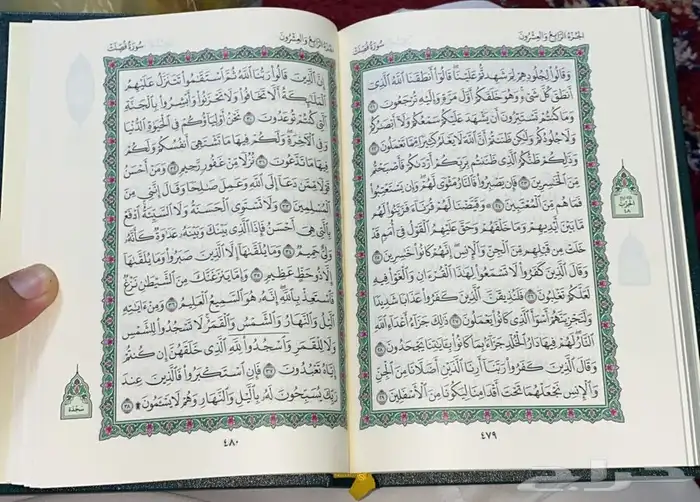 الجزء الرابع والعشرون
سورة فصلت
وَقَالُوا۟ لِجُلُودِهِمْ لِمَ شَهِدتُّمْ عَلَيْنَا ۖ قَالُوٓا۟ أَنطَقَنَا ٱللَّهُ ٱلَّذِىٓ
أَنطَقَ كُلَّ شَىْءٍ وَهُوَ خَلَقَكُمْ أَوَّلَ مَرَّةٍ وَإِلَيْهِ تُرْجَعُونَ ٢١
وَمَا كُنتُمْ تَسْتَتِرُونَ أَن يَشْهَدَ عَلَيْكُمْ سَمْعُكُمْ وَلَآ أَبْصَٰرُكُمْ
وَلَا جُلُودُكُمْ وَلَٰكِن ظَنَنتُمْ أَنَّ ٱللَّهَ لَا يَعْلَمُ كَثِيرًا مِّمَّا تَعْمَلُونَ ٢٢
وَذَٰلِكُمْ ظَنُّكُمُ ٱلَّذِى ظَنَنتُم بِرَبِّكُمْ أَرْدَىٰكُمْ فَأَصْبَحْتُم
مِّنَ ٱلْخَٰسِرِينَ ٢٣ فَإِن يَصْبِرُوا۟ فَٱلنَّارُ مَثْوًى لَّهُمْ ۖ وَإِن يَسْتَعْتِبُوا۟
فَمَا هُم مِّنَ ٱلْمُعْتَبِينَ ٢٤ ۞ وَقَيَّضْنَا لَهُمْ قُرَنَآءَ فَزَيَّنُوا۟ لَهُم
مَّا بَيْنَ أَيْدِيهِمْ وَمَا خَلْفَهُمْ وَحَقَّ عَلَيْهِمُ ٱلْقَوْلُ فِىٓ أُمَمٍ قَدْ
خَلَتْ مِن قَبْلِهِم مِّنَ ٱلْجِنِّ وَٱلْإِنسِ ۖ إِنَّهُمْ كَانُوا۟ خَٰسِرِينَ ٢٥
وَقَالَ ٱلَّذِينَ كَفَرُوا۟ لَا تَسْمَعُوا۟ لِهَٰذَا ٱلْقُرْءَانِ وَٱلْغَوْا۟ فِيهِ
لَعَلَّكُمْ تَغْلِبُونَ ٢٦ فَلَنُذِيقَنَّ ٱلَّذِينَ كَفَرُوا۟ عَذَابًا شَدِيدًا
وَلَنَجْزِيَنَّهُمْ أَسْوَأَ ٱلَّذِى كَانُوا۟ يَعْمَلُونَ ٢٧ ذَٰلِكَ جَزَآءُ أَعْدَآءِ ٱللَّهِ
ٱلنَّارُ ۖ لَهُمْ فِيهَا دَارُ ٱلْخُلْدِ ۖ جَزَآءًۢ بِمَا كَانُوا۟ بِـَٔايَٰتِنَا يَجْحَدُونَ ٢٨
وَقَالَ ٱلَّذِينَ كَفَرُوا۟ رَبَّنَآ أَرِنَا ٱلَّذَيْنِ أَضَلَّانَا مِنَ ٱلْجِنِّ
وَٱلْإِنسِ نَجْعَلْهُمَا تَحْتَ أَقْدَامِنَا لِيَكُونَا مِنَ ٱلْأَسْفَلِينَ ٢٩
الحزب
٤٨
٤٧٩
الجزء الرابع والعشرون
سورة فصلت
إِنَّ ٱلَّذِينَ قَالُوا۟ رَبُّنَا ٱللَّهُ ثُمَّ ٱسْتَقَٰمُوا۟ تَتَنَزَّلُ عَلَيْهِمُ
ٱلْمَلَٰٓئِكَةُ أَلَّا تَخَافُوا۟ وَلَا تَحْزَنُوا۟ وَأَبْشِرُوا۟ بِٱلْجَنَّةِ
ٱلَّتِى كُنتُمْ تُوعَدُونَ ٣٠ نَحْنُ أَوْلِيَآؤُكُمْ فِى ٱلْحَيَوٰةِ ٱلدُّنْيَا
وَفِى ٱلْءَاخِرَةِ ۖ وَلَكُمْ فِيهَا مَا تَشْتَهِىٓ أَنفُسُكُمْ وَلَكُمْ
فِيهَا مَا تَدَّعُونَ ٣١ نُزُلًا مِّنْ غَفُورٍ رَّحِيمٍ ٣٢ وَمَنْ أَحْسَنُ
قَوْلًا مِّمَّن دَعَآ إِلَى ٱللَّهِ وَعَمِلَ صَٰلِحًا وَقَالَ إِنَّنِى مِنَ
ٱلْمُسْلِمِينَ ٣٣ وَلَا تَسْتَوِى ٱلْحَسَنَةُ وَلَا ٱلسَّيِّئَةُ ۚ ٱدْفَعْ
بِٱلَّتِى هِىَ أَحْسَنُ فَإِذَا ٱلَّذِى بَيْنَكَ وَبَيْنَهُۥ عَدَٰوَةٌ كَأَنَّهُۥ
وَلِىٌّ حَمِيمٌ ٣٤ وَمَا يُلَقَّىٰهَآ إِلَّا ٱلَّذِينَ صَبَرُوا۟ وَمَا يُلَقَّىٰهَآ
إِلَّا ذُو حَظٍّ عَظِيمٍ ٣٥ وَإِمَّا يَنزَغَنَّكَ مِنَ ٱلشَّيْطَٰنِ نَزْغٌ
فَٱسْتَعِذْ بِٱللَّهِ ۖ إِنَّهُۥ هُوَ ٱلسَّمِيعُ ٱلْعَلِيمُ ٣٦ وَمِنْ ءَايَٰتِهِ
ٱلَّيْلُ وَٱلنَّهَارُ وَٱلشَّمْسُ وَٱلْقَمَرُ ۚ لَا تَسْجُدُوا۟ لِلشَّمْسِ
وَلَا لِلْقَمَرِ وَٱسْجُدُوا۟ لِلَّهِ ٱلَّذِى خَلَقَهُنَّ إِن كُنتُمْ
إِيَّاهُ تَعْبُدُونَ ٣٧ فَإِنِ ٱسْتَكْبَرُوا۟ فَٱلَّذِينَ عِندَ
رَبِّكَ يُسَبِّحُونَ لَهُۥ بِٱلَّيْلِ وَٱلنَّهَارِ وَهُمْ لَا يَسْـَٔمُونَ ۩ ٣٨
سجدة
٤٨٠
حراج